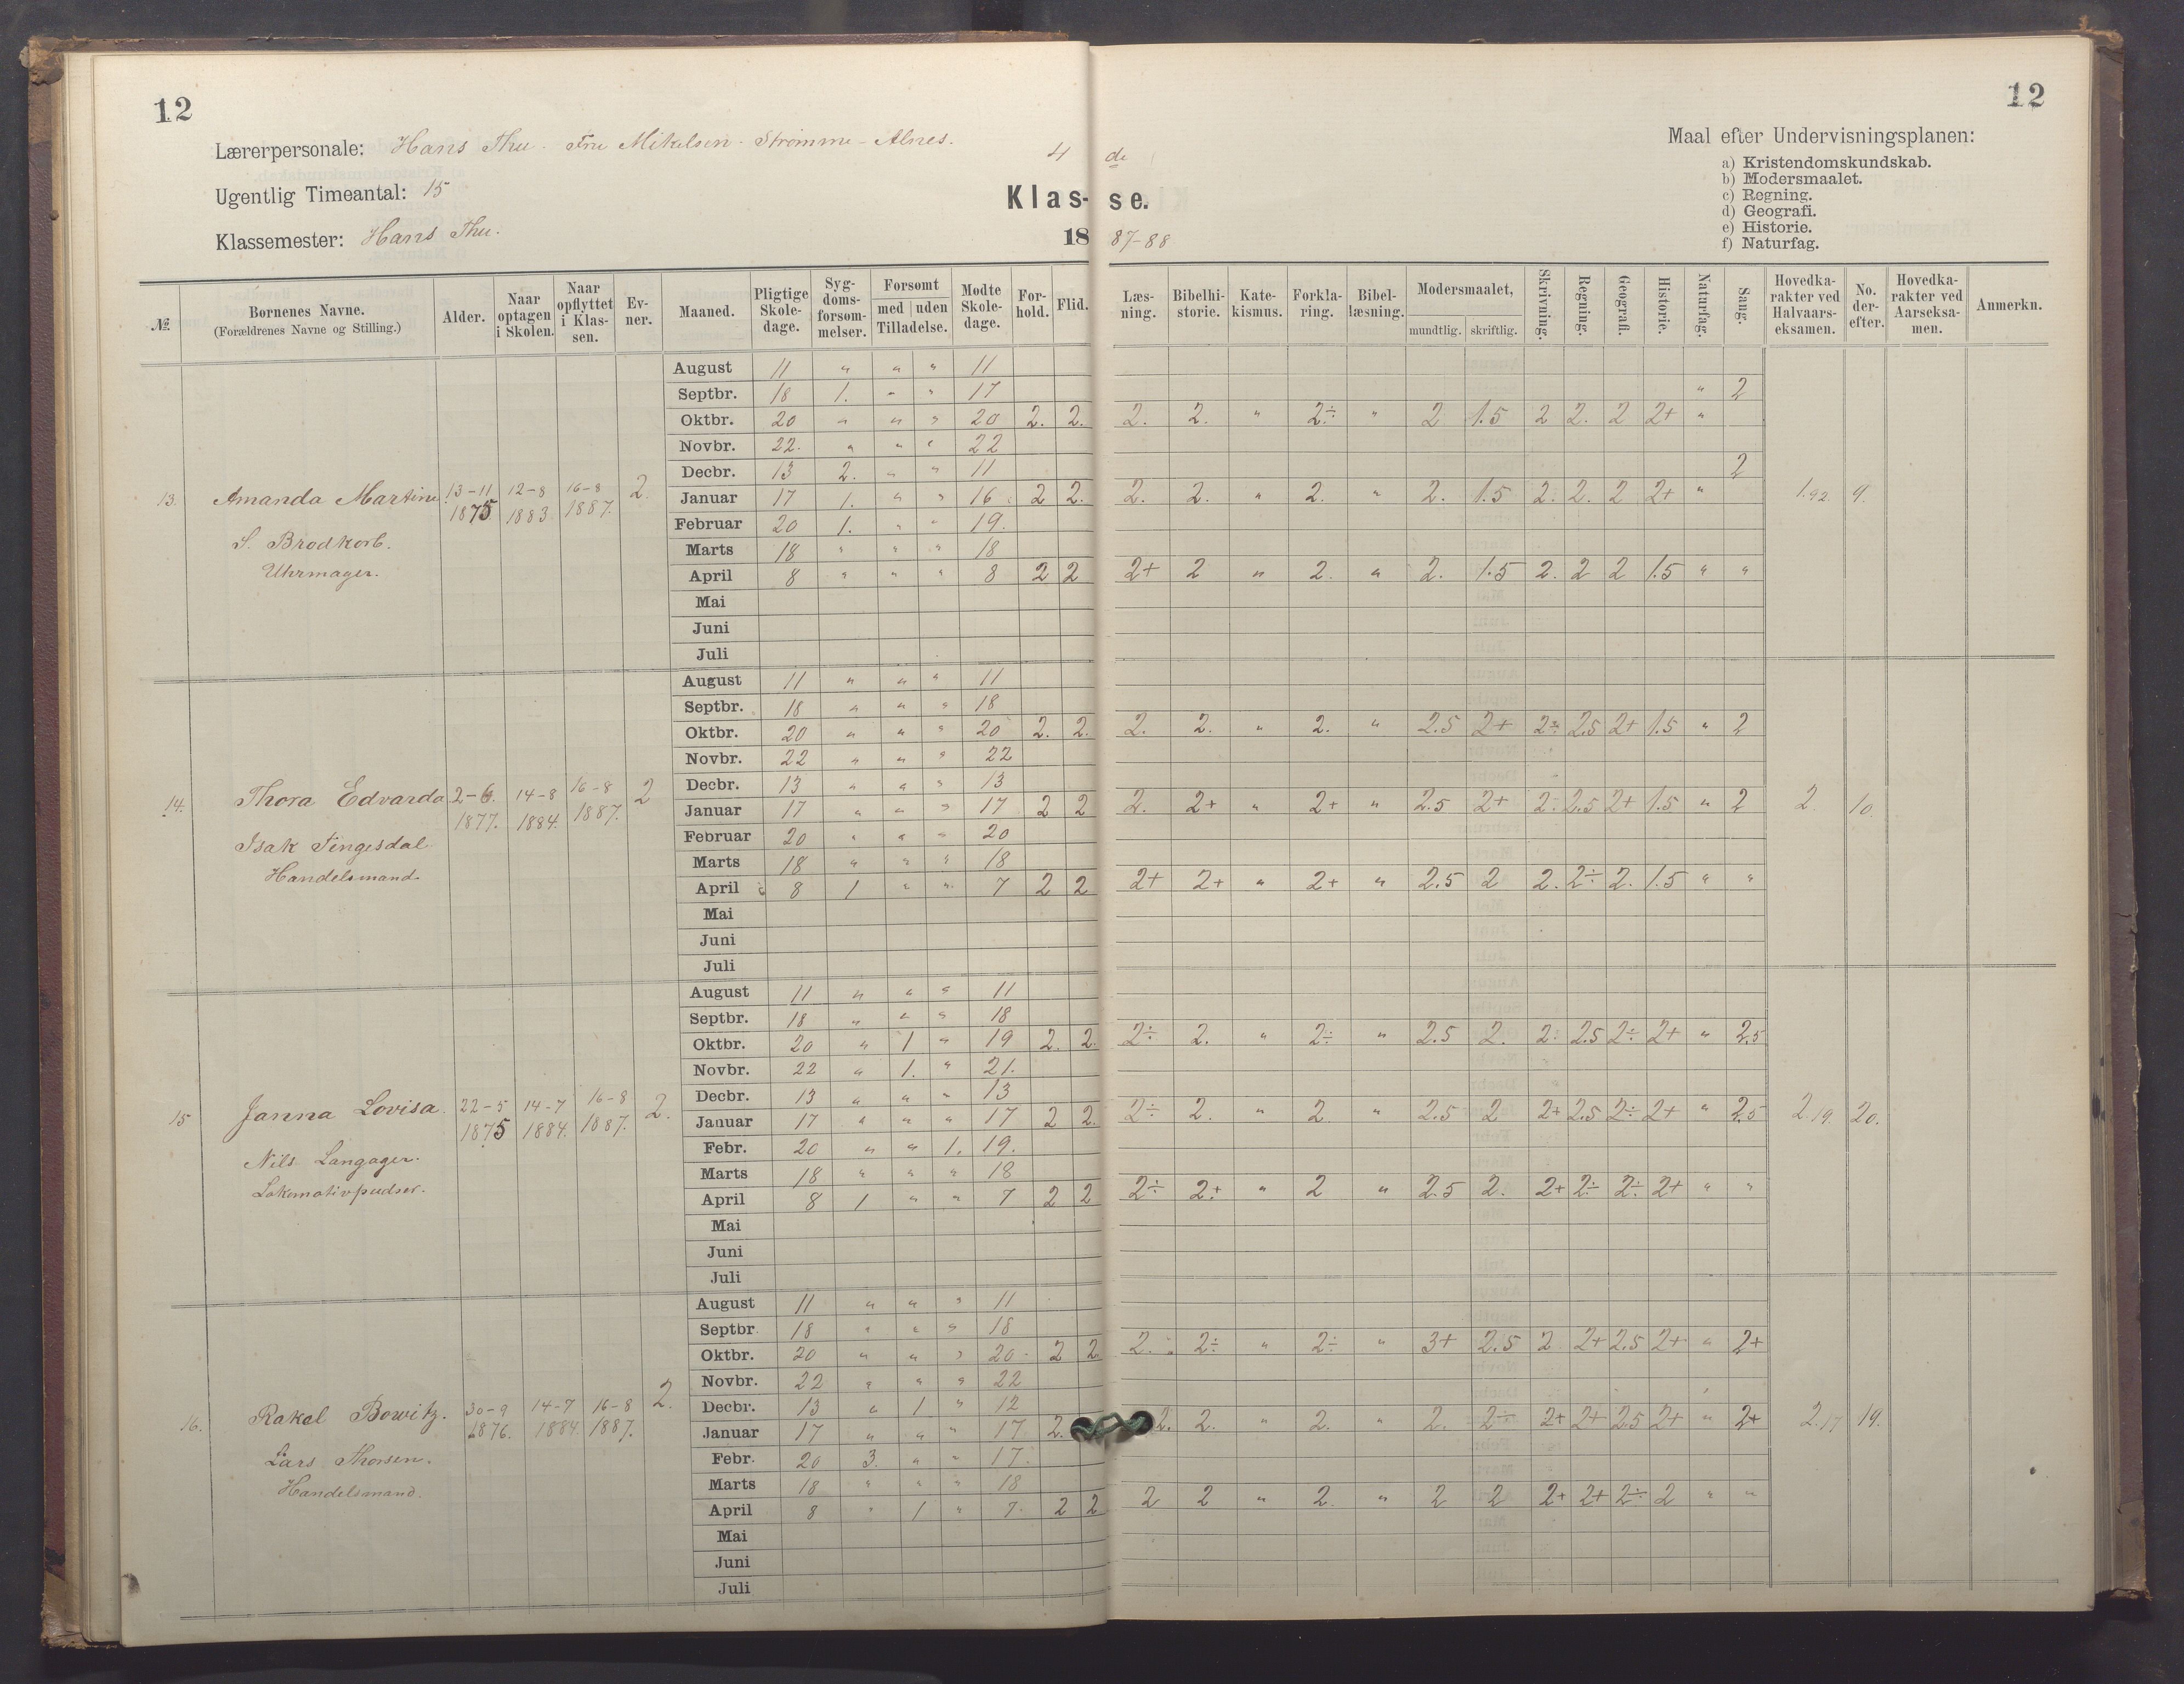 12
12
Lærerpersonale: Hans Thu. Fru Mikelsen. Strømme - Alnes.
Ugentlig Timeantal: 15
Klassemester: Hans Thu.
4 de
Klas- se.
18 87-88
Maal efter Undervisningsplanen:
a) Kristendomskundskab.
b) Modersmaalet.
c) Regning.
d) Geografi.
e) Historie.
f) Naturfag.
№ Børnenes Navne. (Forældrenes Navne og Stilling.) Alder. Naar optagen i Skolen. Naar opflyttet i Klas-sen. Ev-ner. Maaned. Pligtige Skole-dage. Syg-doms-forsøm-melser. Forsømt med uden Tilladelse. Mødte Skole-dage. For-hold. Flid. Læs-ning. Bibelhi-storie. Kate-kismus. Forkla-ring. Bibel-læsning. Modersmaalet, mundtlig. skriftlig. Skrivning. Regning. Geografi. Historie. Naturfag. Sang. Hovedka-rakter ved Halvaars-eksamen. No. der-efter. Hovedka-rakter ved Aarseksa-men. Anmerkn.
13. Amanda Martine 13-11 1875 12-8 1883. 16-8 1887. 2. 1.92. 9.
S. Brodkorb.
Uhrmager.
August 11 " " " 11
Septbr. 18 1. " " 17 " 2
Oktbr. 20 " " " 20 2. 2. 2. 2. " 2÷ " 2 1.5 2 2. 2 2+ "
Novbr. 22. " " " 22
Decbr. 13 2. " " 11 2
Januar 17 1. " " 16 2 2. 2. 2. " 2. " 2. 1.5 2. 2. 2 2+ "
Februar 20 1. " " 19.
Marts 18 " " " 18
April 8 " " " 8 2 2 2+ 2 " 2. " 2. 1.5 2. 2 2 1.5 " "
Mai
Juni
Juli
14. Thora Edvarda 2-6. 1877. 14-8 1884. 16-8 1887. 2 2. 10.
Isak Tingesdal.
Handelsmand.
August 11 " " " 11
Septbr. 18 " " " 18
Oktbr. 20 " " " 20 2. 2. 2. 2. " 2. " 2.5 2+ 2÷ 2.5 2+ 1.5 " 2
Novbr. 22 " " " 22
Decbr. 13 " " " 13
Januar 17 " " " 17 2 2 2. 2+ " 2+ " 2.5 2+ 2÷ 2.5 2+ 1.5 " 2
Februar 20 " " " 20
Marts 18 " " " 18
April 8 1 " " 7 2 2 2+ 2+ " 2+ " 2.5 2 2. 2÷ 2. 1.5 " "
Mai
Juni
Juli
15 Janna Lovisa. 22-5 1875 14-7 1884. 16-8 1887. 2. 2.19. 20.
Nils Langager.
Lokomotivpudser.
August 11 " " " 11
Septbr. 18 " " " 18
Oktbr. 20 " 1 " 19 2. 2. 2÷ 2. " 2÷ " 2.5 2. 2÷ 2.5 2÷ 2+ " 2.5
Novbr. 22 " 1. " 21.
Decbr. 13 " " " 13
Januar 17 " " " 17 2 2. 2÷ 2. " 2 " 2.5 2 2+ 2.5 2÷ 2+ " 2.5
Febr. 20 " " 1. 19.
Marts 18 " " " 18
April 8 1 " " 7 2 2 2÷ 2+ " 2 " 2.5 2. 2+ 2÷ 2÷ 2+ " "
Mai
Juni
Juli
16. Rakel Bowitz. 30-9 1876. 14-7 1884 16-8 1887. 2. 2.17 19.
Lars Thorsen.
Handelsmand.
August 11 " " " 11
Septbr 18 " " " 18
Oktbr. 20 " " " 20 2 2. 2. 2÷ " 2÷ " 3+ 2.5 2 2+ 2.5 2+ " 2+
Novbr. 22 " " " 22
Decbr. 13 " 1 " 12
Januar 17 " " " 17 2. 2. 2. " 2. " 2. 2÷ 2+ 2+ 2.5 2+ " 2+
Febr. 20 3. " " 17.
Marts 18 " " " 18
April 8 " 1 " 7. 2 2 2 2 " 2. " 2 2 2+ 2+ 2÷ 2 " "
Mai
Juni
Juli